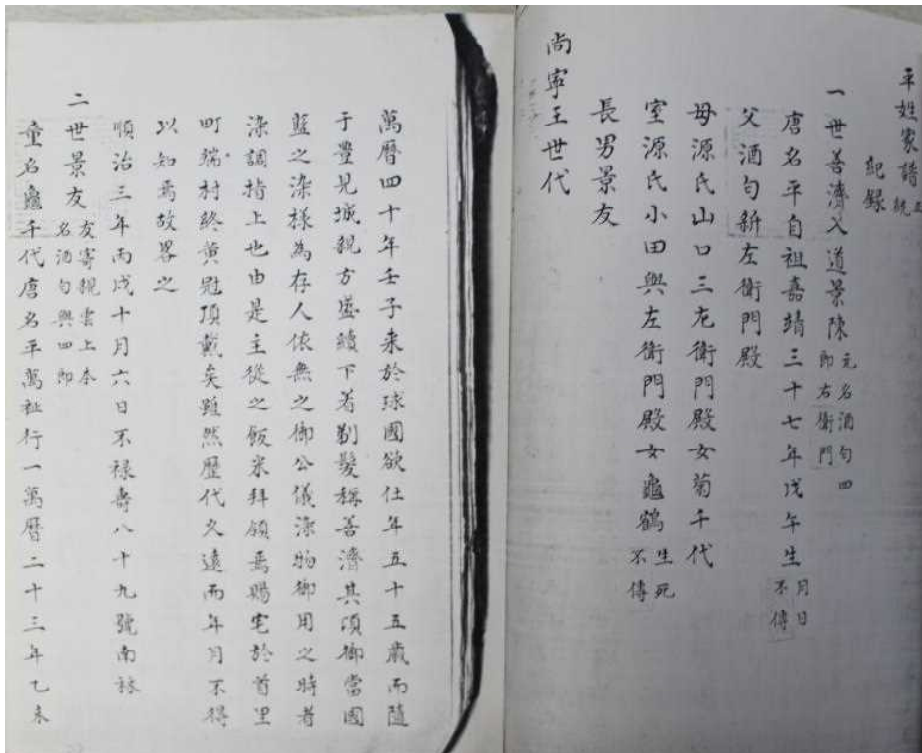 平姓家譜正統
紀録
一世善濟入道景陳 元名酒匂四郎右衛門
唐名平自祖嘉靖三十七年戊午生 月日不傳
父酒匂新左衛門殿
母源氏山口三左衛門殿女菊千代
室源氏小田與左衛門殿女龜鶴 生死不傳
長男景友
尚寧王世代
萬暦四十年壬子来於球國欲仕年五十五歳而隨
于豊見城親方盛續下着剃髮稱善濟其頃御當國
藍之染樣為存人依無之御公儀染物御用之時者
染調揩上也由是主從之飯米拜領焉賜宅於首里
町端村終黄冠頂戴矣雖然歴代久遠而年月不得
以知焉故畧之
順治三年丙戌十月六日不禄壽八十九號南林
二世景友 友寄親雲上本名酒匂與四郎
童名龜千代唐名平萬祉行一萬暦二十三年乙未